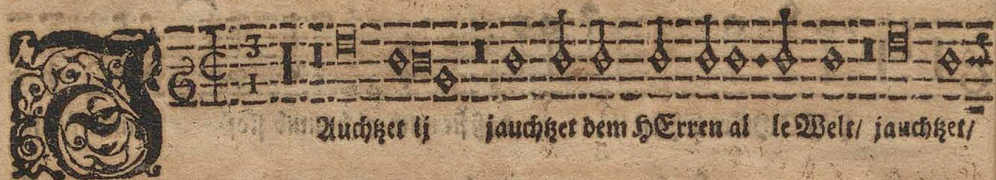 JAuchtzet ij jauchtzet dem HErren al le Welt/ jauchtzet/